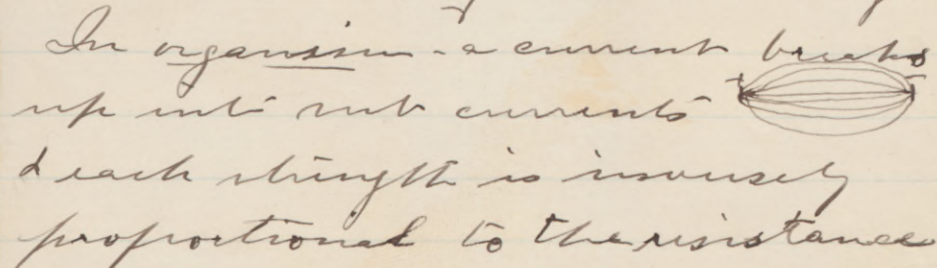 In organism - a current breaks
up into sub currents
& each strength is inversely
proportional to the resistance